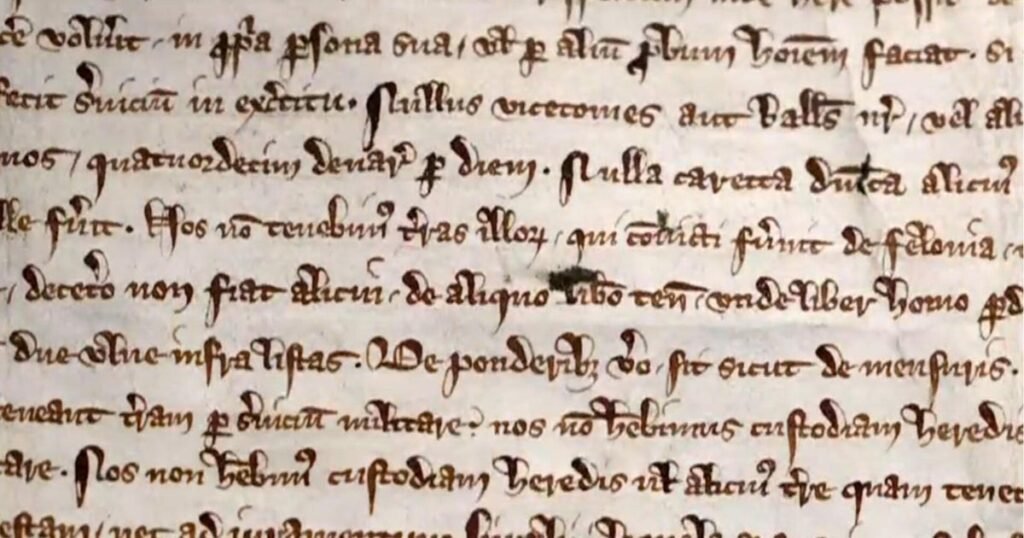 c̄e vol̾uit, in ꝓp̾a ꝑsona sua, ul̾ ꝑ aliū ꝓbum hoīem faciat. si
fecit s̾uiciū in exc̾itu. Nullus vicecomes aut Ball̾s nr̄, vel ali
nos, quatuordecim denar̾ ꝑ diem. Nulla caretta dn̄ica alicuiꝰ
lle fu̾int. Nos nō tenebimꝰ t̾ras illoꝝ, qui cōuicti fu̾int de felonia,
, decet̾o non fiat alicui, de aliquo lib̾o ten̄, vnde liber homo ꝑd
due vlne infra listas. De ponderibꝫ v̾o, sit sicut de mensuris.
teneant t̾ram ꝑ s̾uiciū militare; nos nō hēbimus custodiam heredis
tare. Nos non hēbimꝰ custodiam heredis ul̾ alicuiꝰ t̾re quam tenet